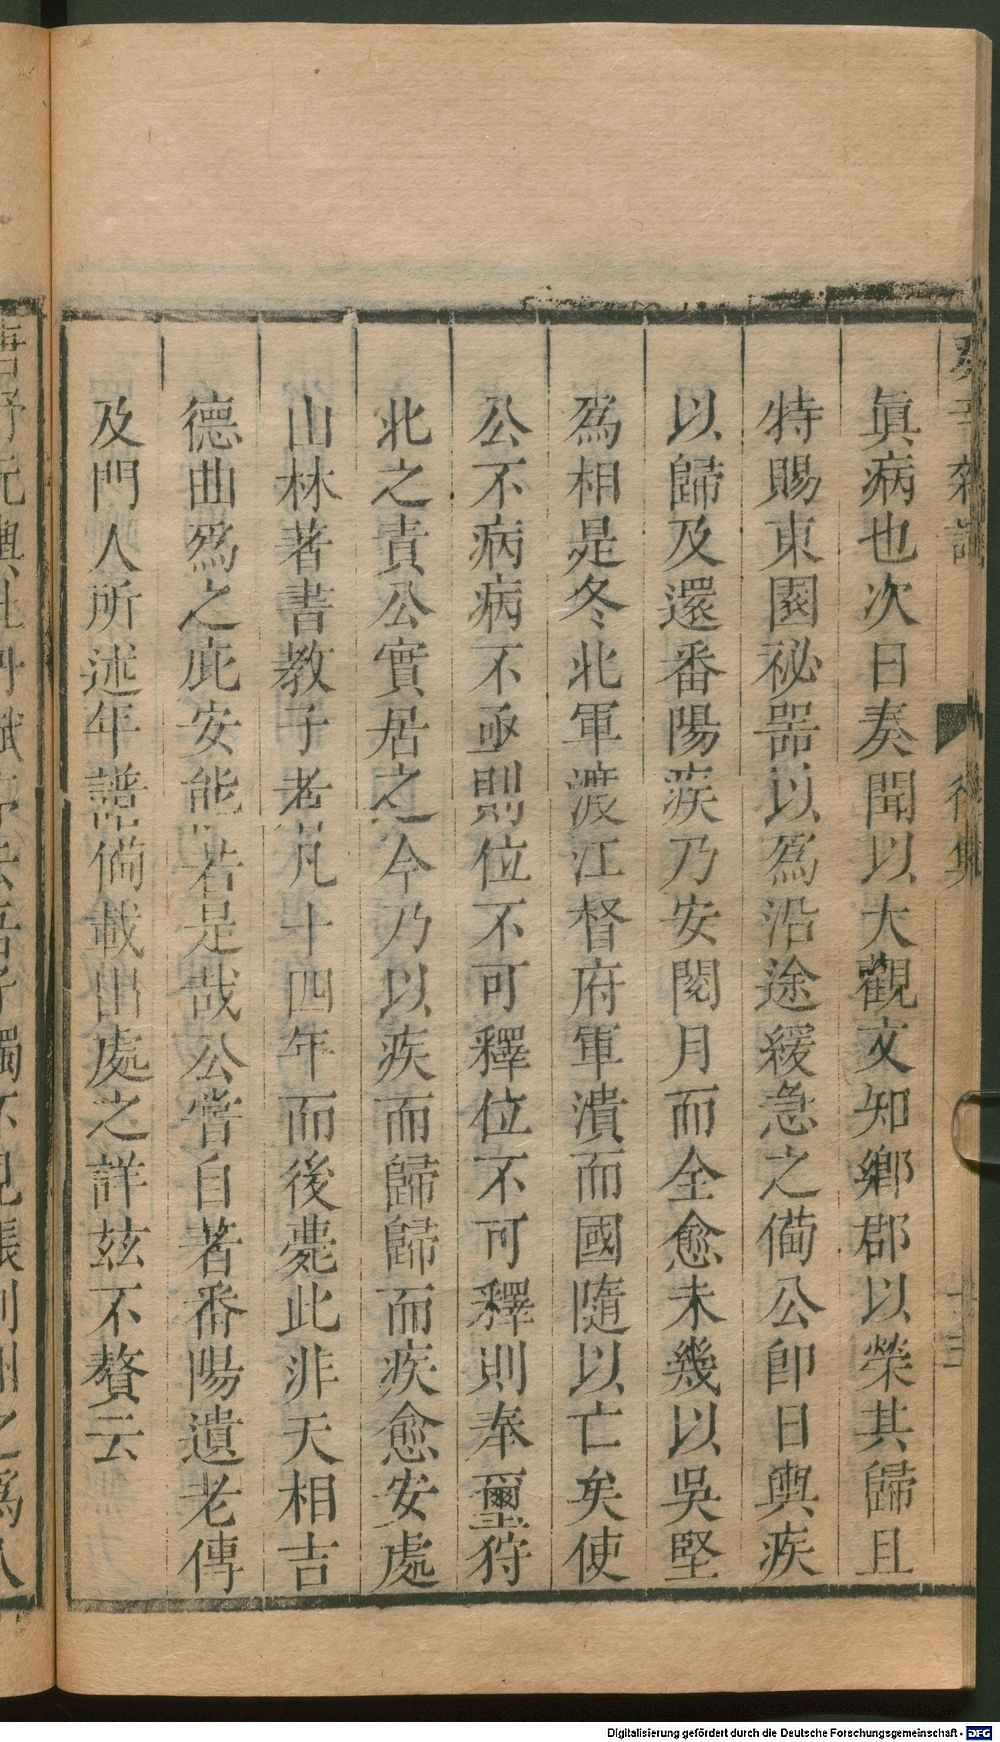 癸辛雜識 後集 十三
眞病也次日奏聞以大觀文知鄉郡以榮其歸且
特賜東園祕器以爲沿途緩急之備公卽日輿疾
以歸及還番陽疾乃安閱月而全愈未幾以吳堅
爲相是冬北軍渡江督府軍潰而國隨以亡矣使
公不病病不亟則位不可釋位不可釋則奉璽狩
北之責公實居之今乃以疾而歸歸而疾愈安處
山林著書教子者凡十四年而後薨此非天相吉
德曲爲之庇安能若是哉公嘗自著番陽遺老傳
及門人所述年譜備載出處之詳玆不贅云
Digitalisierung gefördert durch die Deutsche Forschungsgemeinschaft - DFG